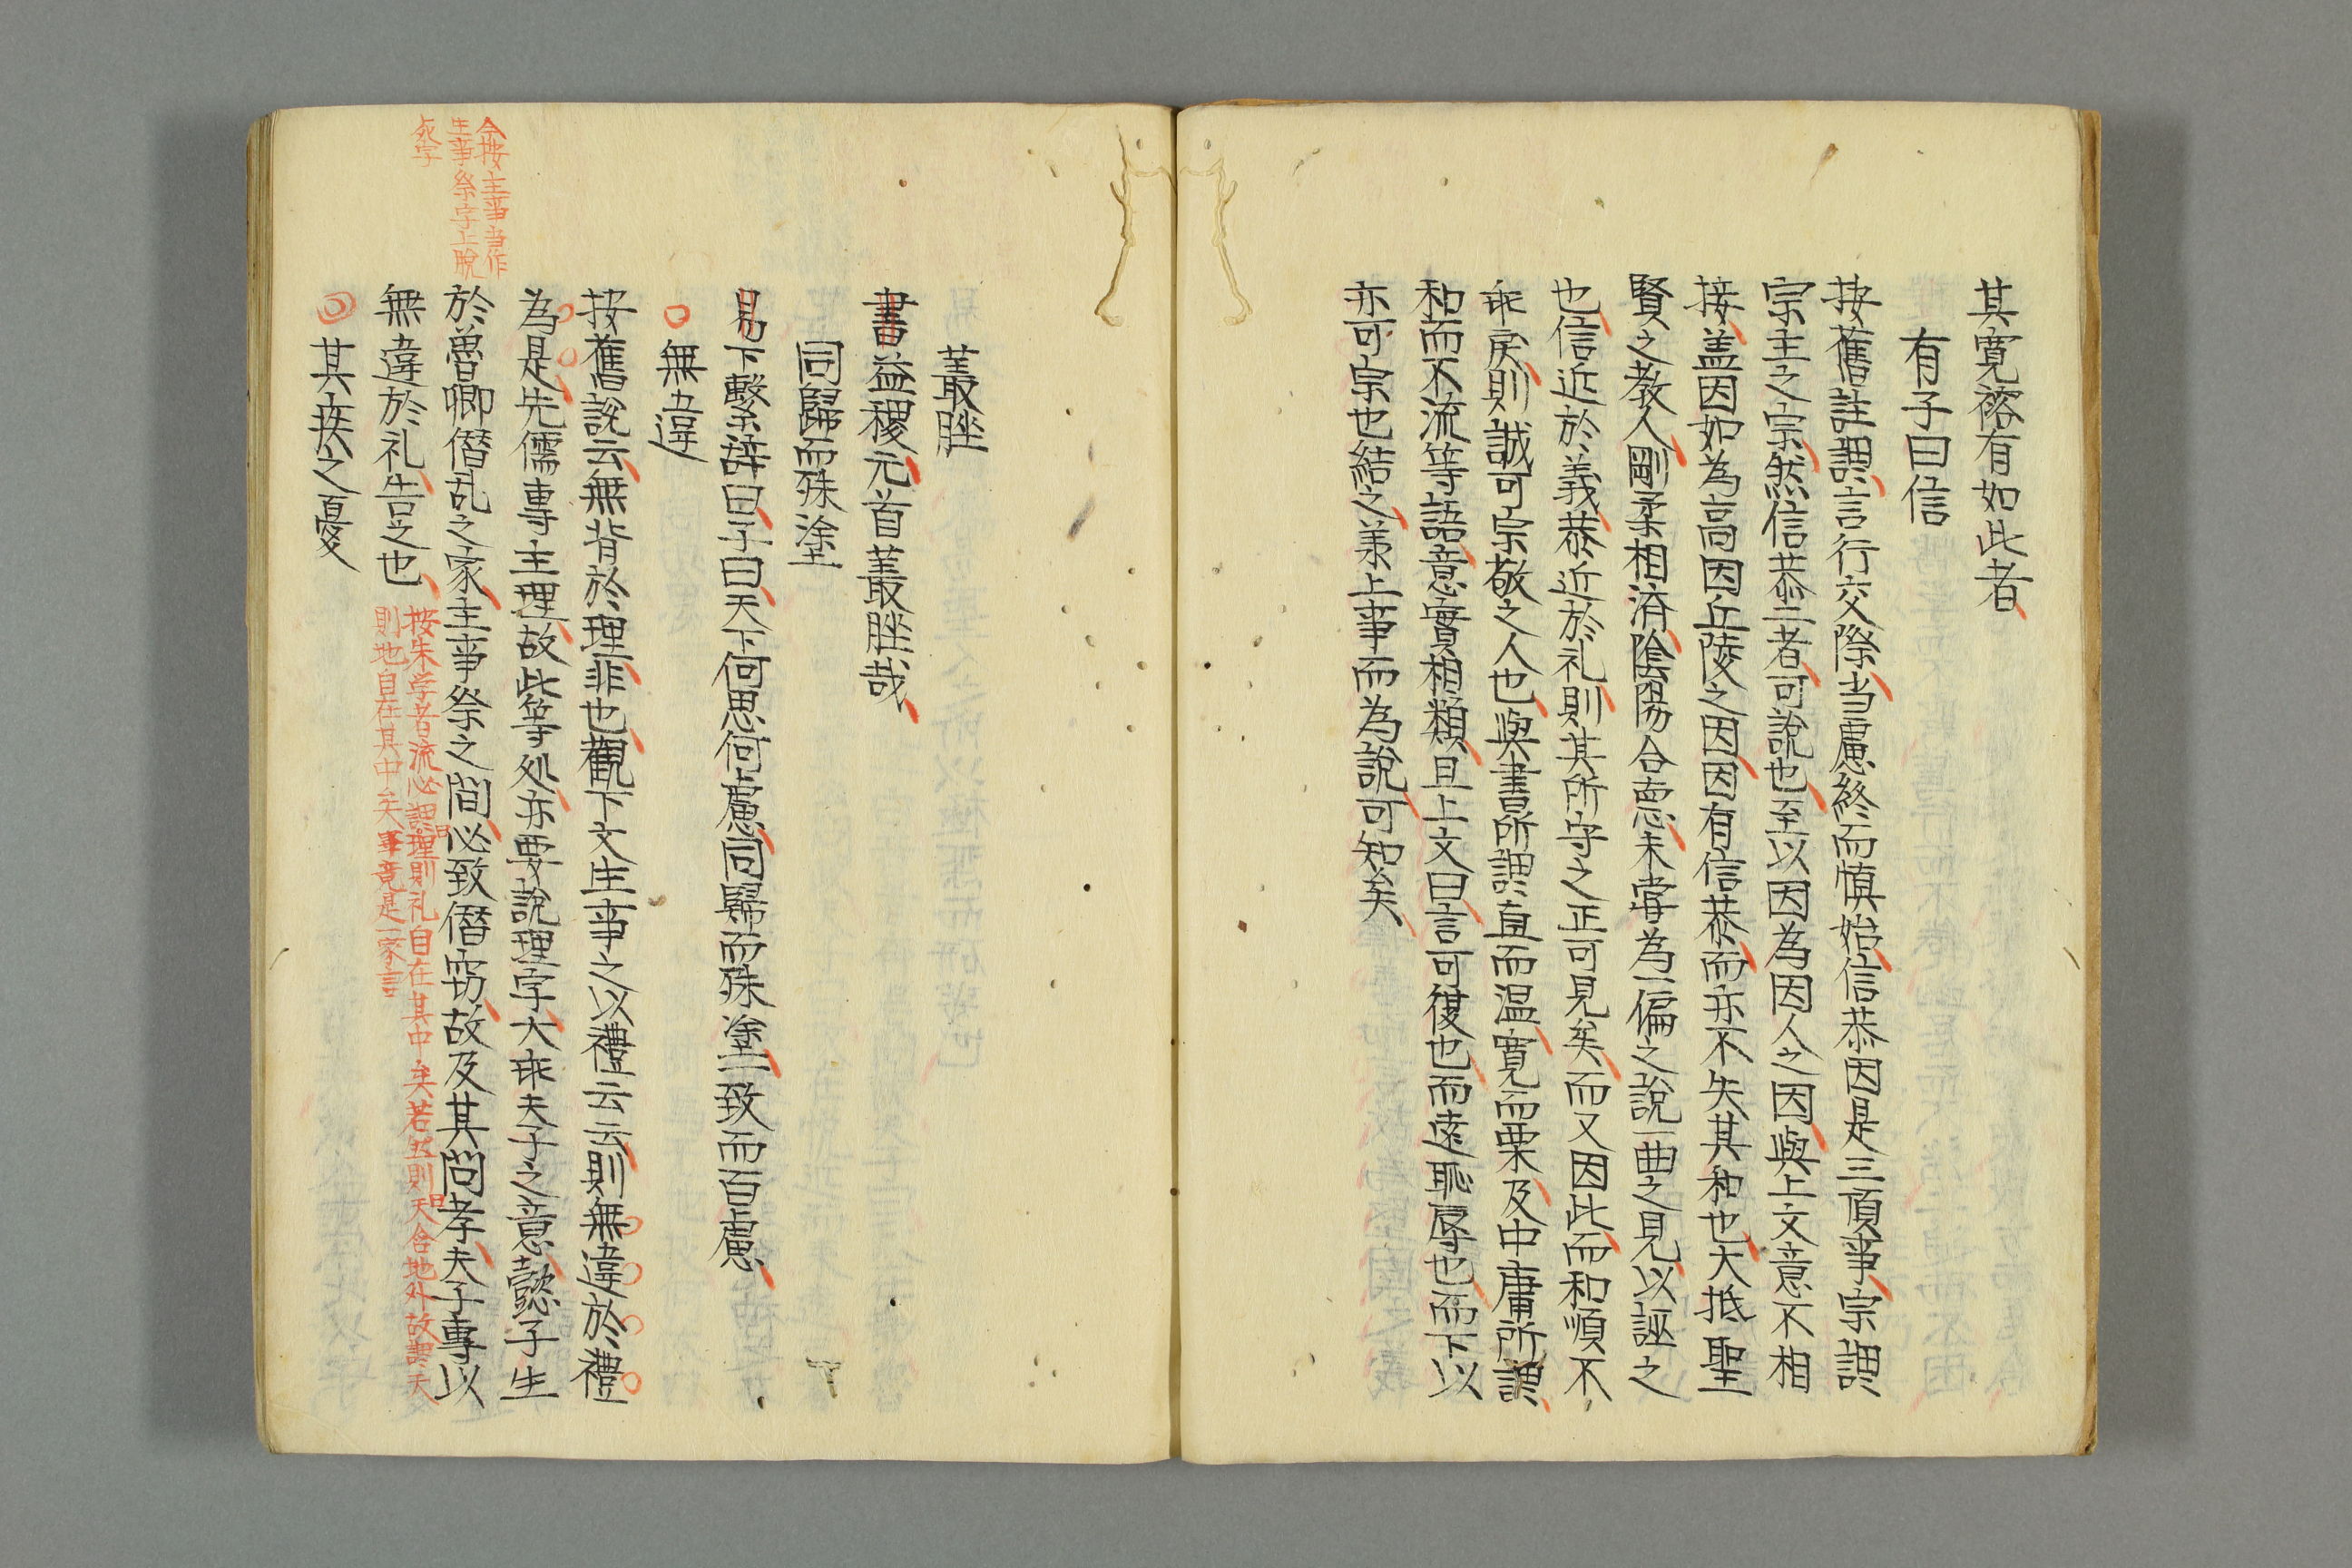 其寛裕有如此者
有子曰信
按舊註謂言行交際当慮終而慎始信恭因是三項事宗謂
宗主之宗然信恭二者可說也至以因為因人之因與上文意不相
接盖因如為高因丘陵之因因有信恭而亦不失其和也大抵聖
賢之教人剛柔相済陰陽合悳未嘗為一偏之說一曲之見以誣之
也信近於義恭近於礼則其所守之正可見矣而又因此而和順不
乖戻則誠可宗敬之人也與書所謂直而温寛而栗及中庸所謂
和而不流等語意實相類且上文曰言可復也而遠恥辱也而下以
亦可宗也結之兼上事而為說可知矣
叢脞
書益稷元首叢脞哉
同歸而殊塗
易下繫辞曰子曰天下何思何慮同歸而殊塗一致而百慮
無違
按舊說云無背於理非也觀下文生事之以禮云云則無違於禮
為是先儒專主理故此等処亦要說理字大乖夫子之意懿子生
於魯卿僭乱之家主事祭之間必致僭窃故及其問孝夫子專以
無違於礼告之也
按朱学者流必謂理則礼自在其中矣若然則天合地外故謂天
則地自在其中矣畢竟是一家言
其疾之憂
今按主事当作
生事祭字上脫
死字